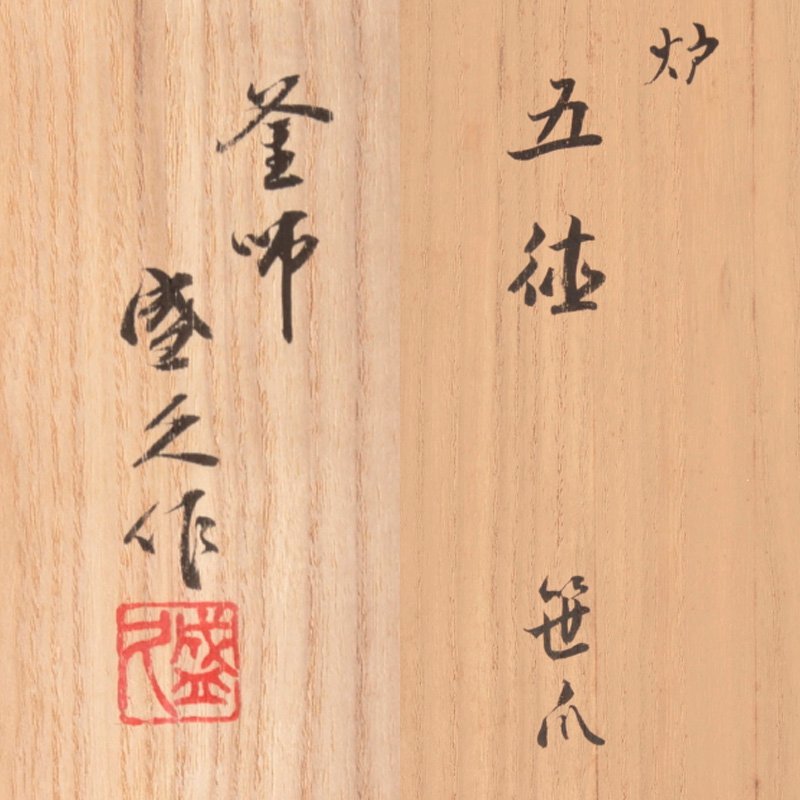 炉
五徳
笹爪
釜師
盛久作
盛久